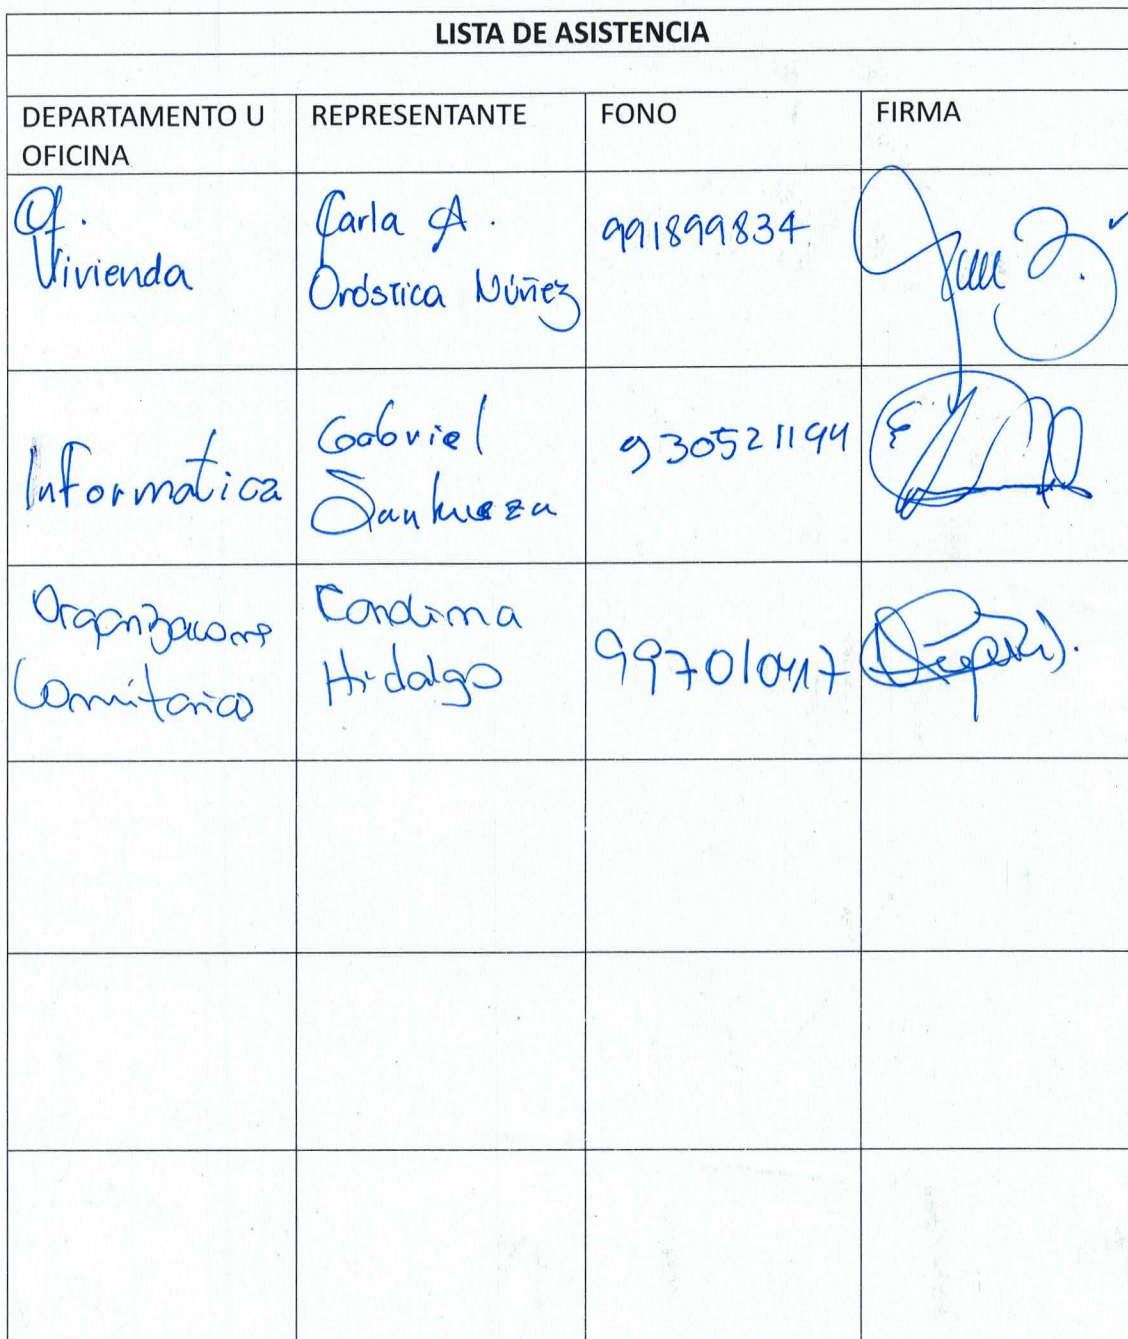 LISTA DE ASISTENCIA
DEPARTAMENTO U
OFICINA
REPRESENTANTE
FONO
FIRMA
Of.
Vivienda
Carla A.
Oróstica Núñez
991899834
Informatica
Gabriel
Sanhueza
930521194
Hidalgo
997010417